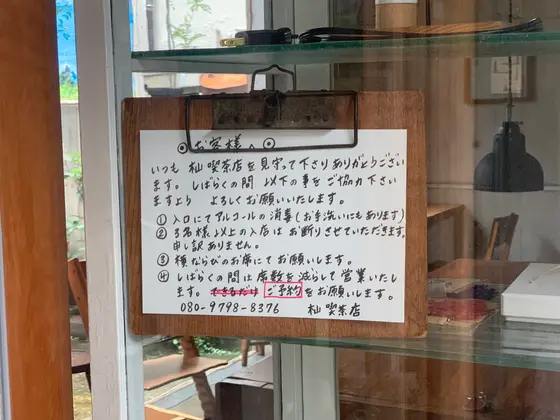 ◉お客様へ◉
いつも 杣 喫茶店を見守って下さりありがとうござい
ます。しばらくの間 以下の事をご協力下さい
ますよう よろしくお願いいたします。
① 入口にてアルコールの消毒(お手洗いにもあります)
② 3名様以上の入店はお断りさせていただきます。
申し訳ありません。
③ 横ならびのお席にてお願いします。
④ しばらくの間は席数を減らして営業いたし
ます。できるだけ ご予約をお願いします。
080-9798-8376 杣 喫茶店